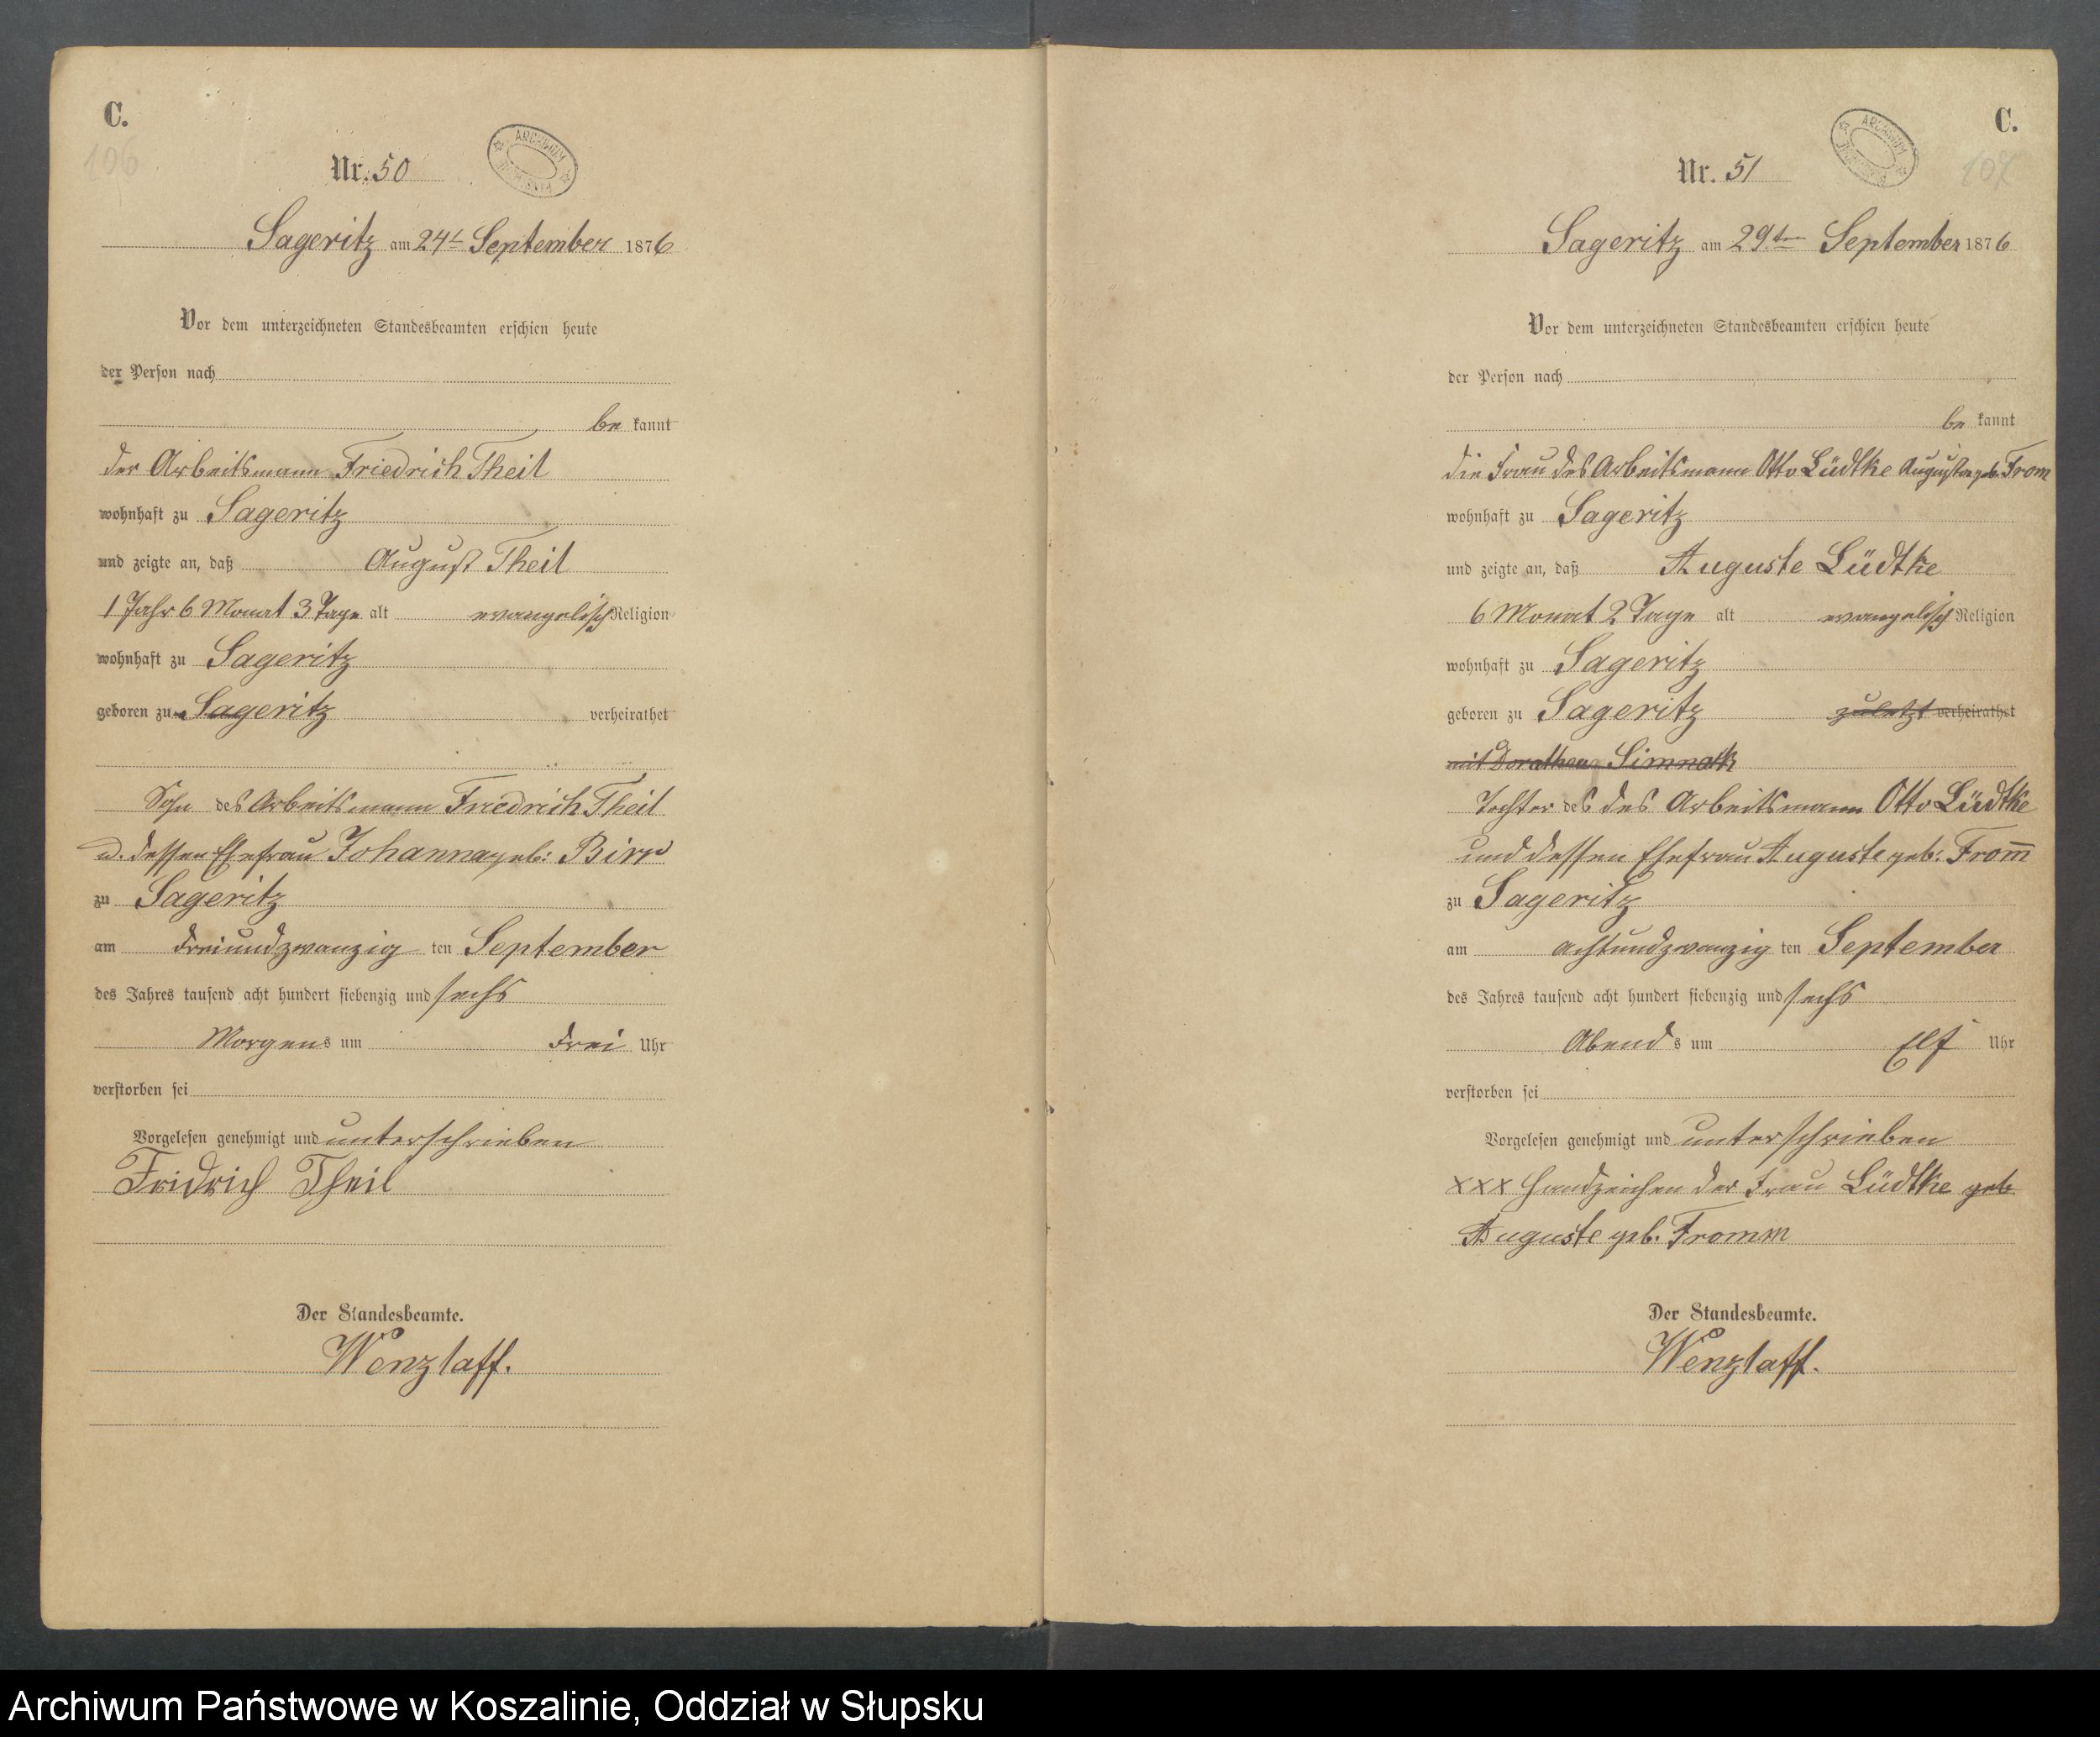 C.
106
Nr. 50
Sageritz am 24t September 1876
Vor dem unterzeichneten Standesbeamten erschien heute
der Person nach
be kannt
der Arbeitsmann Friedrich Theil
wohnhaft zu Sageritz
und zeigte an, daß August Theil
1 Jahr 6 Monat 3 Tage alt evangelisch Religion
wohnhaft zu Sageritz
geboren zu Sageritz verheirathet
Sohn des Arbeitsmann Friedrich Theil
u. dessen Ehefrau Johanna geb: Birr
zu Sageritz
am dreiundzwanzig ten September
des Jahres tausend acht hundert siebenzig und sechs
Morgens um drei Uhr
verstorben sei
Vorgelesen genehmigt und unterschrieben
Fridrich Theil
Der Standesbeamte.
Wenzlaff.
C.
107
Nr. 51
Sageritz am 29ten September 1876
Vor dem unterzeichneten Standesbeamten erschien heute
der Person nach
be kannt
die Frau des Arbeitsmann Otto Lüdtke Auguste geb. From
wohnhaft zu Sageritz
und zeigte an, daß Auguste Lüdtke
6 Monat 2 Tage alt evangelisch Religion
wohnhaft zu Sageritz
geboren zu Sageritz zuletzt verheirathet
mit Dorathea Simnack
Tochter des des Arbeitsmann Otto Lüdtke
und dessen Ehefrau Auguste geb: From̅
zu Sageritz
am achtundzwanzig ten September
des Jahres tausend acht hundert siebenzig und sechs
Abend s um Elf Uhr
verstorben sei
Vorgelesen genehmigt und unterschrieben
XXX Handzeichen der Frau Lüdtke geb
Auguste geb. Fromm
Der Standesbeamte.
Wenzlaff.
Archiwum Państwowe w Koszalinie, Oddział w Słupsku